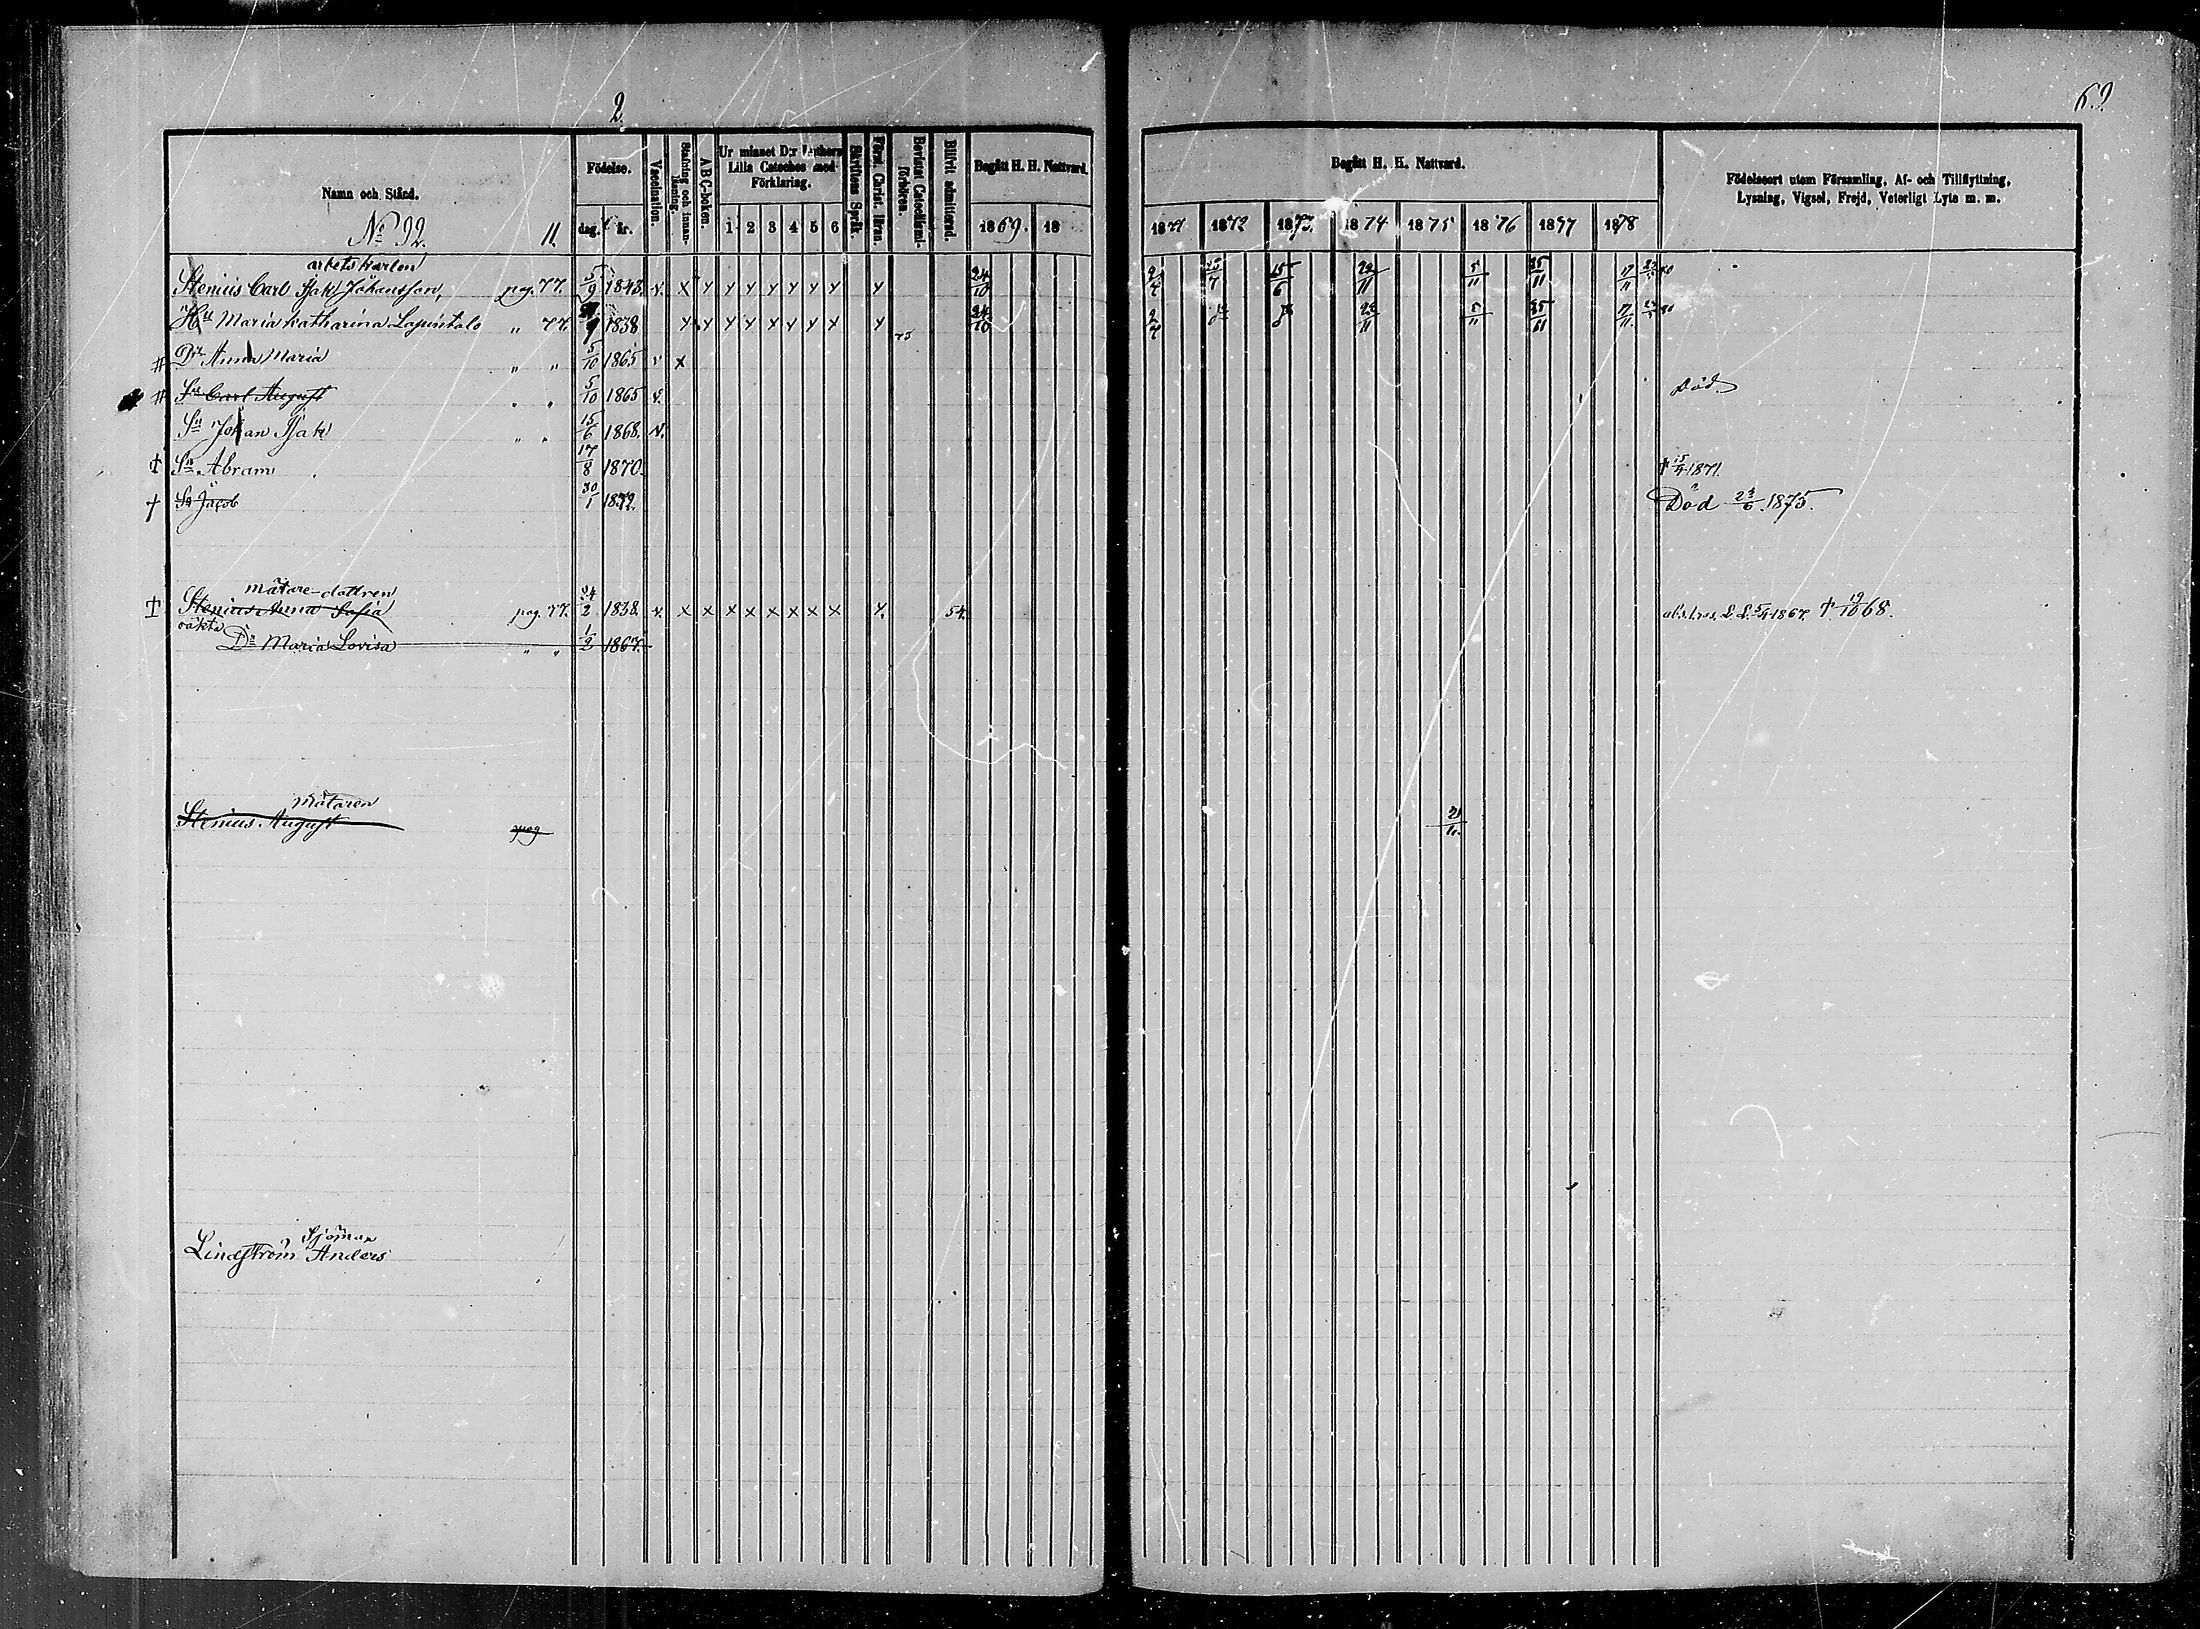 2.
69
Namn och Stånd.
Födelse.
Vaccination.
Stafning och innanläsning.
ABC-boken.
Ur minnet D:r Luthers Lilla Cateches med Förklaring.
Skriftens Språk.
Först. Christ. lāran.
Bevistat Catechismiförhören.
Blifvit admitterad.
Begått H. H. Nattvard.
Begått H. H. Nattvard.
Födelseort utom Församling, Af- och Tillflyttning, Lysning, Vigsel, Frejd, Veterligt Lyte m. m.
No 92. 11.
dag. år. 1 2 3 4 5 6 1869. 18 1871 1872 1873. 1874 1875 1876 1877 1878
arbetskarlen
Stenius Carl Isak Johansson, pag. 77. 5/9 1843. v. x y y y y y y y y 24/10 2/7 15/6 22/11 5/11 25/11 17/11
Hu Maria Katharina Lapintalo " 77. 1838 y y y y y y y y y 24/10 75 2/7 22/11 5/11 17/11
# Dr Anna Maria " " 5/10 1865 v x
# Sn Carl August " " 5/10 1865 v. Död
Sn Johan Isak " " 15/6 1868. v.
‡ Sn Abram 17/8 1870. † 15/4 1871.
† Sn Jacob 30/1 1872. Död 23/6 1875.
mätare-dottren
Stenius Anna Sofia pag. 77. 24/2 1838. v. x x x x x x x x y. 54. abs. L. L. 5/4 1867. † 19/10 68.
oäkta
Dr Maria Lovisa " " 1/2 1867.
mätaren
Stenius August pag
Sjöman
Lindström Anders